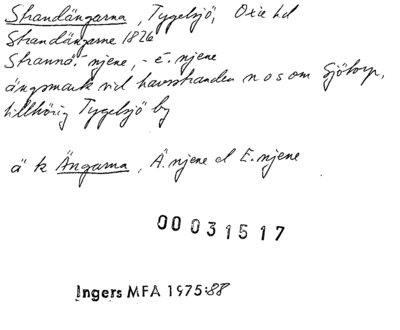 Strandängarna, Tygelsjö, Oxie hd
Strandängarne 1826
Strannä.- njene, - e.- njene
ängsmark vid havsstranden n o s om Sjötorp,
tillhörig Tygelsjö by
ä k Ängarna, Ä.njene el E.njene
00031517
Ingers MFA 1975:88